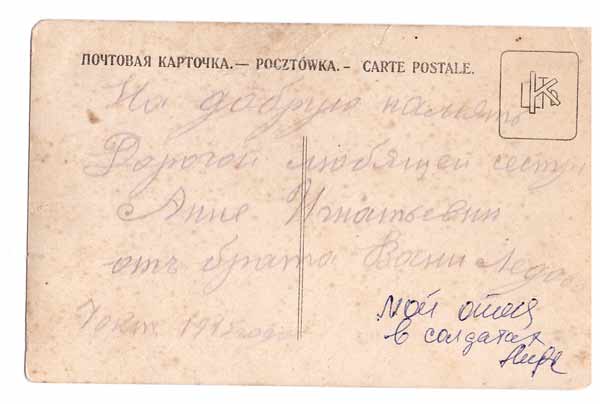 ПОЧТОВАЯ КАРТОЧКА.— POCZTÓWKA.- CARTE POSTALE.
На добрую память
Дорогой любящей сестры
Анне Игнатьевни
отъ брата Васи
1915 года
мой отец
в солдатах